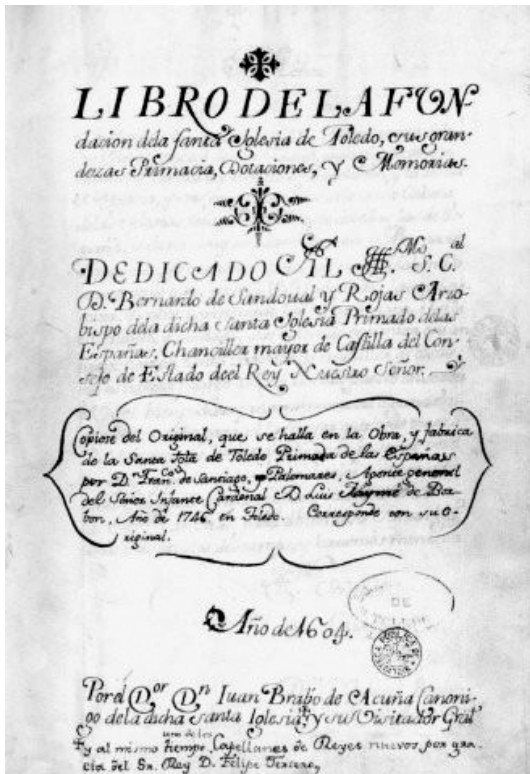 LIBRO DE LA FUN-
dacion dela santa Iglesia de Toledo, sus gran-
dezas Primacia, Dotaciones, y Memorias.
DEDICADO AL Ill.mo S. C.al
D. Bernardo de Sandoual y Rojas Arzo-
bispo dela dicha santa Iglesia Primado delas
Españas, Chanciller mayor de Castilla del Con-
sejo de Estado deel Rey Nuestro Señor.
Copiose del Original, que se halla en la Obra, y fabrica
de la Santa Igla de Toledo Primada de las Españas
por D. Fran.co de Santiago, y Palomares, Agente general
del Señor Infante Cardenal D. Luis Jayme de Bor-
bon, Año de 1746 en Toledo. Corresponde con su o-
riginal.
DE
Año de 1604.
Por el D.or D.n Iuan Brabo de Acuña Canoni-
go dela dicha santa Iglesia y su Visitador Gral
uno de los
y al mismo tiempo Capellanes de Reyes nuevos por gra-
cia del Sr. Rey D. Felipe Tercero,